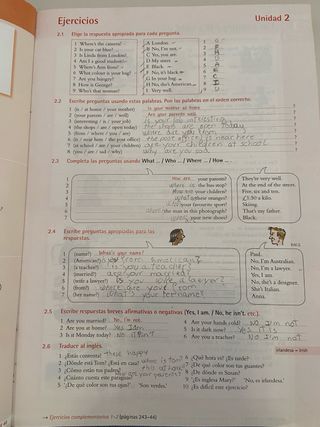 Ejercicios
Unidad 2
2.1 Elige la respuesta apropiada para cada pregunta.
1 Where's the camera?
2 Is your car blue?
3 Is Linda from London?
4 Am I a good student?
5 Where's Ann from?
6 What colour is your bag?
7 Are you hungry?
8 How is George?
9 Who's that woman?
A London.
B No, I'm not.
C Yes, you are.
D My sister.
E Black.
F No, it's black.
G In your bag.
H No, she's American.
I Very well.
2.2 Escribe preguntas usando estas palabras. Pon las palabras en el orden correcto.
1 (is / at home / your mother) Is your mother at home ?
2 (your parents / are / well) Are your parents well ?
3 (interesting / is / your job) is your job interesting ?
4 (the shops / are / open today) the shops are open today ?
5 (from / where / you / are) where are you from ?
6 (is / near here / the post office) the post office is near here ?
7 (at school / are / your children) are your children at school ?
8 (you / are / sad / why) why are you sad ?
2.3 Completa las preguntas usando What ... / Who ... / Where ... / How ... .
1 How are your parents?
2 where is the bus stop?
3 your children?
4 these oranges?
5 your favourite sport?
6 the man in this photograph?
7 your new shoes?
They're very well.
At the end of the street.
Five, six and ten.
£1.50 a kilo.
Skiing.
That's my father.
Black.
2.4 Escribe preguntas apropiadas para las respuestas.
PAUL
1 (name?) What's your name?
2 (American?)
3 (a teacher?)
4 (married?) are you married?
5 (wife a lawyer?)
6 (from?)
7 (her name?)
Paul.
No, I'm Australian.
No, I'm a lawyer.
Yes, I am.
No, she's a designer.
She's Italian.
Anna.
2.5 Escribe respuestas breves afirmativas o negativas (Yes, I am. / No, he isn't. etc.).
1 Are you married? No, I'm not.
2 Are you at home? Yes I am
3 Is it Monday today? No it isn't
4 Are your hands cold? No I'm not
5 Is it dark now?
6 Are you a teacher? No I'm not
2.6 Traduce al inglés.
irlandesa = Irish
1 ¿Estás contento?
2 ¿Dónde está Tom? ¿Está en casa?
3 ¿Cómo están tus padres?
4 ¿Cuánto cuesta este paraguas?
5 '¿De qué color son tus ojos?' 'Son verdes.'
6 ¿Qué hora es? ¿Es tarde?
7 ¿De qué color son tus guantes?
8 ¿De dónde es Susan?
9 '¿Es inglesa Mary?' 'No, es irlandesa.'
10 ¿Es difícil este ejercicio?
→ Ejercicios complementarios 1–2 (páginas 243–44)